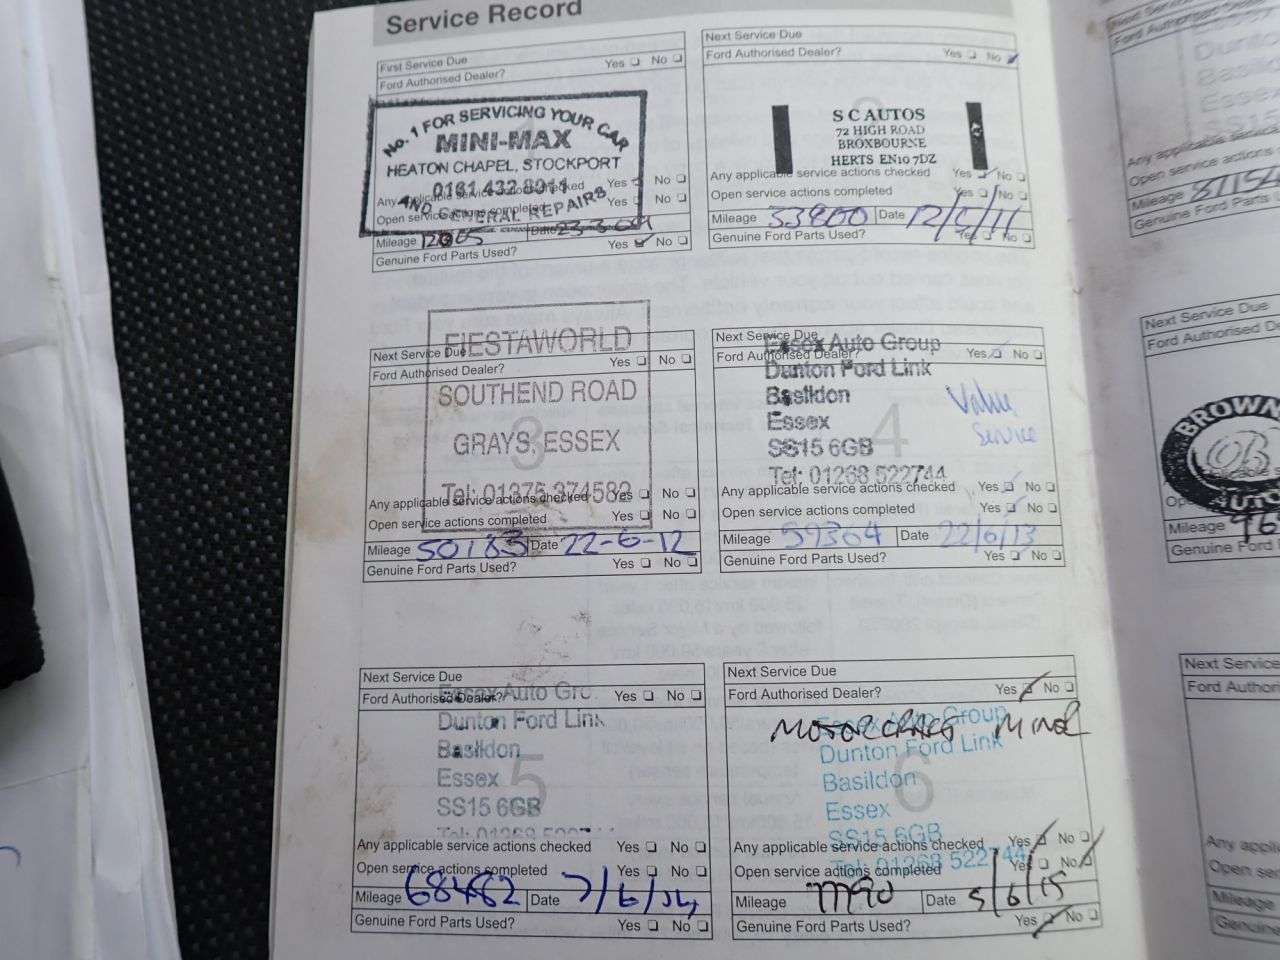 Service Record
First Service Due
Ford Authorised Dealer? Yes No
No. 1 FOR SERVICING YOUR CAR
MINI-MAX
HEATON CHAPEL, STOCKPORT
0161 432 8011
AND GENERAL REPAIRS
Any applicable service actions checked Yes No
Open service actions completed Yes No
Mileage Date 23-3-09
Genuine Ford Parts Used? Yes No
Next Service Due
Ford Authorised Dealer? Yes No
S C AUTOS
72 HIGH ROAD
BROXBOURNE
HERTS EN10 7DZ
Any applicable service actions checked Yes No
Open service actions completed Yes No
Mileage 33800 Date
Genuine Ford Parts Used? Yes No
Next Service Due
Ford Authorised Dealer? Yes No
FIESTAWORLD
SOUTHEND ROAD
3
GRAYS, ESSEX
Tel: 01375 374583
Any applicable service actions checked Yes No
Open service actions completed Yes No
Mileage 50183 Date 22-6-12
Genuine Ford Parts Used? Yes No
Next Service Due
Ford Authorised Dealer? Yes No
Essex Auto Group
Dunton Ford Link
Basildon
Essex
SS15 6GB
Tel: 01268 522744
4
Value
Service
Any applicable service actions checked Yes No
Open service actions completed Yes No
Mileage 59304 Date 22/6/13
Genuine Ford Parts Used? Yes No
Next Service Due
Ford Authorised Dealer? Yes No
Essex Auto Gro
Dunton Ford Link
Basildon
5
Essex
SS15 6GB
Any applicable service actions checked Yes No
Open service actions completed Yes No
Mileage 68482 Date 7/6/14
Genuine Ford Parts Used? Yes No
Next Service Due
Ford Authorised Dealer? Yes No
Essex Auto Group
Dunton Ford Link
Basildon
6
Essex
SS15 6GB
Tel: 01268 522744
Any applicable service actions checked Yes No
Open service actions completed Yes No
Mileage Date 5/6/15
Genuine Ford Parts Used? Yes No
Ford Authorised
Any applicable
Open service actions
Mileage 87154
Genuine Ford Parts
Next Service Due
Ford Authorised D
BROWN
OB
Mileage 96
Genuine Ford
Next Service
Ford Author
Any appli
Open ser
Mileage
Genuine